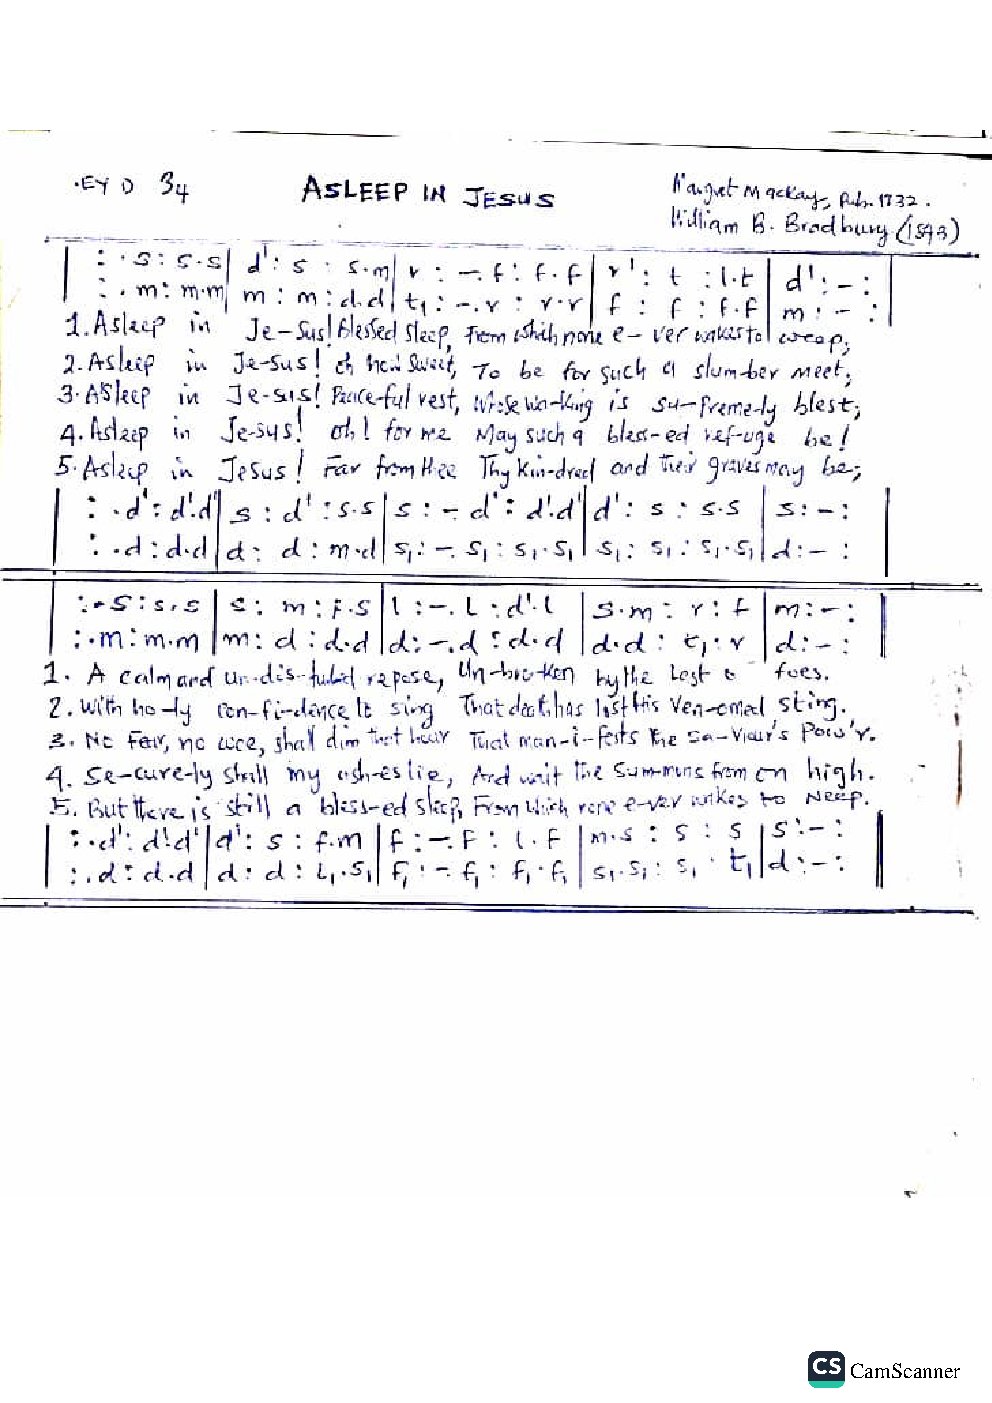 .EY D 34 ASLEEP IN JESUS Margret Mackay, Pub. 1832.
William B. Bradbury (1843)
| : . s : s . s | d' : s : s . m | r : - . f : f . f | r' : t : l . t | d' : - : |
| : . m : m . m | m : m : d . d | t₁ : - . r : r . r | f : f : f . f | m : - : |
1. Asleep in Je-sus! Blessed sleep, From which none e-ver wakes to weep;
2. Asleep in Je-sus! oh how sweet, To be for such a slum-ber meet;
3. Asleep in Je-sus! Peace-ful rest, Whose wa-king is su-preme-ly blest;
4. Asleep in Je-sus! oh! for me May such a bless-ed ref-uge be!
5. Asleep in Jesus! Far from thee Thy kin-dred and their graves may be;
| : . d' : d' . d' | s : d' : s . s | s : - . d' : d' . d' | d' : s : s . s | s : - : |
| : . d : d . d | d : d : m . d | s₁ : - . s₁ : s₁ . s₁ | s₁ : s₁ : s₁ . s₁ | d : - : |
| : . s : s . s | s : m : f . s | l : - . l : d' . l | s . m : r : f | m : - : |
| : . m : m . m | m : d : d . d | d : - . d : d . d | d . d : t₁ : r | d : - : |
1. A calm and un-dis-turbed repose, Un-bro-ken by the Last foes.
2. With ho-ly con-fi-dence to sing That death has lost his ven-omed sting.
3. No fear, no woe, shall dim that hour That man-i-fests the Sa-viour's Pow'r.
4. Se-cure-ly shall my ash-es lie, And wait the summons from on high.
5. But there is still a bless-ed sleep, From which none e-ver wakes to weep.
| : . d' : d' . d' | d' : s : f . m | f : - . f : l . f | m . s : s : s | s : - : |
| : . d : d . d | d : d : l₁ . s₁ | f₁ : - . f₁ : f₁ . f₁ | s₁ . s₁ : s₁ . t₁ | d : - : |
CS CamScanner